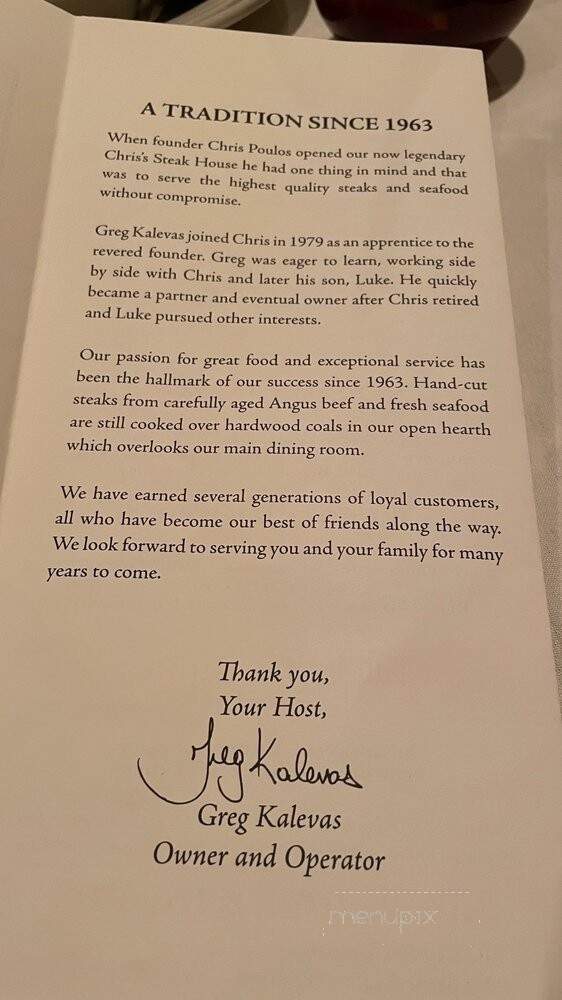 A TRADITION SINCE 1963
When founder Chris Poulos opened our now legendary
Chris's Steak House he had one thing in mind and that
was to serve the highest quality steaks and seafood
without compromise.
Greg Kalevas joined Chris in 1979 as an apprentice to the
revered founder. Greg was eager to learn, working side
by side with Chris and later his son, Luke. He quickly
became a partner and eventual owner after Chris retired
and Luke pursued other interests.
Our passion for great food and exceptional service has
been the hallmark of our success since 1963. Hand-cut
steaks from carefully aged Angus beef and fresh seafood
are still cooked over hardwood coals in our open hearth
which overlooks our main dining room.
We have earned several generations of loyal customers,
all who have become our best of friends along the way.
We look forward to serving you and your family for many
years to come.
Thank you,
Your Host,
Greg Kalevas
Greg Kalevas
Owner and Operator
menupix